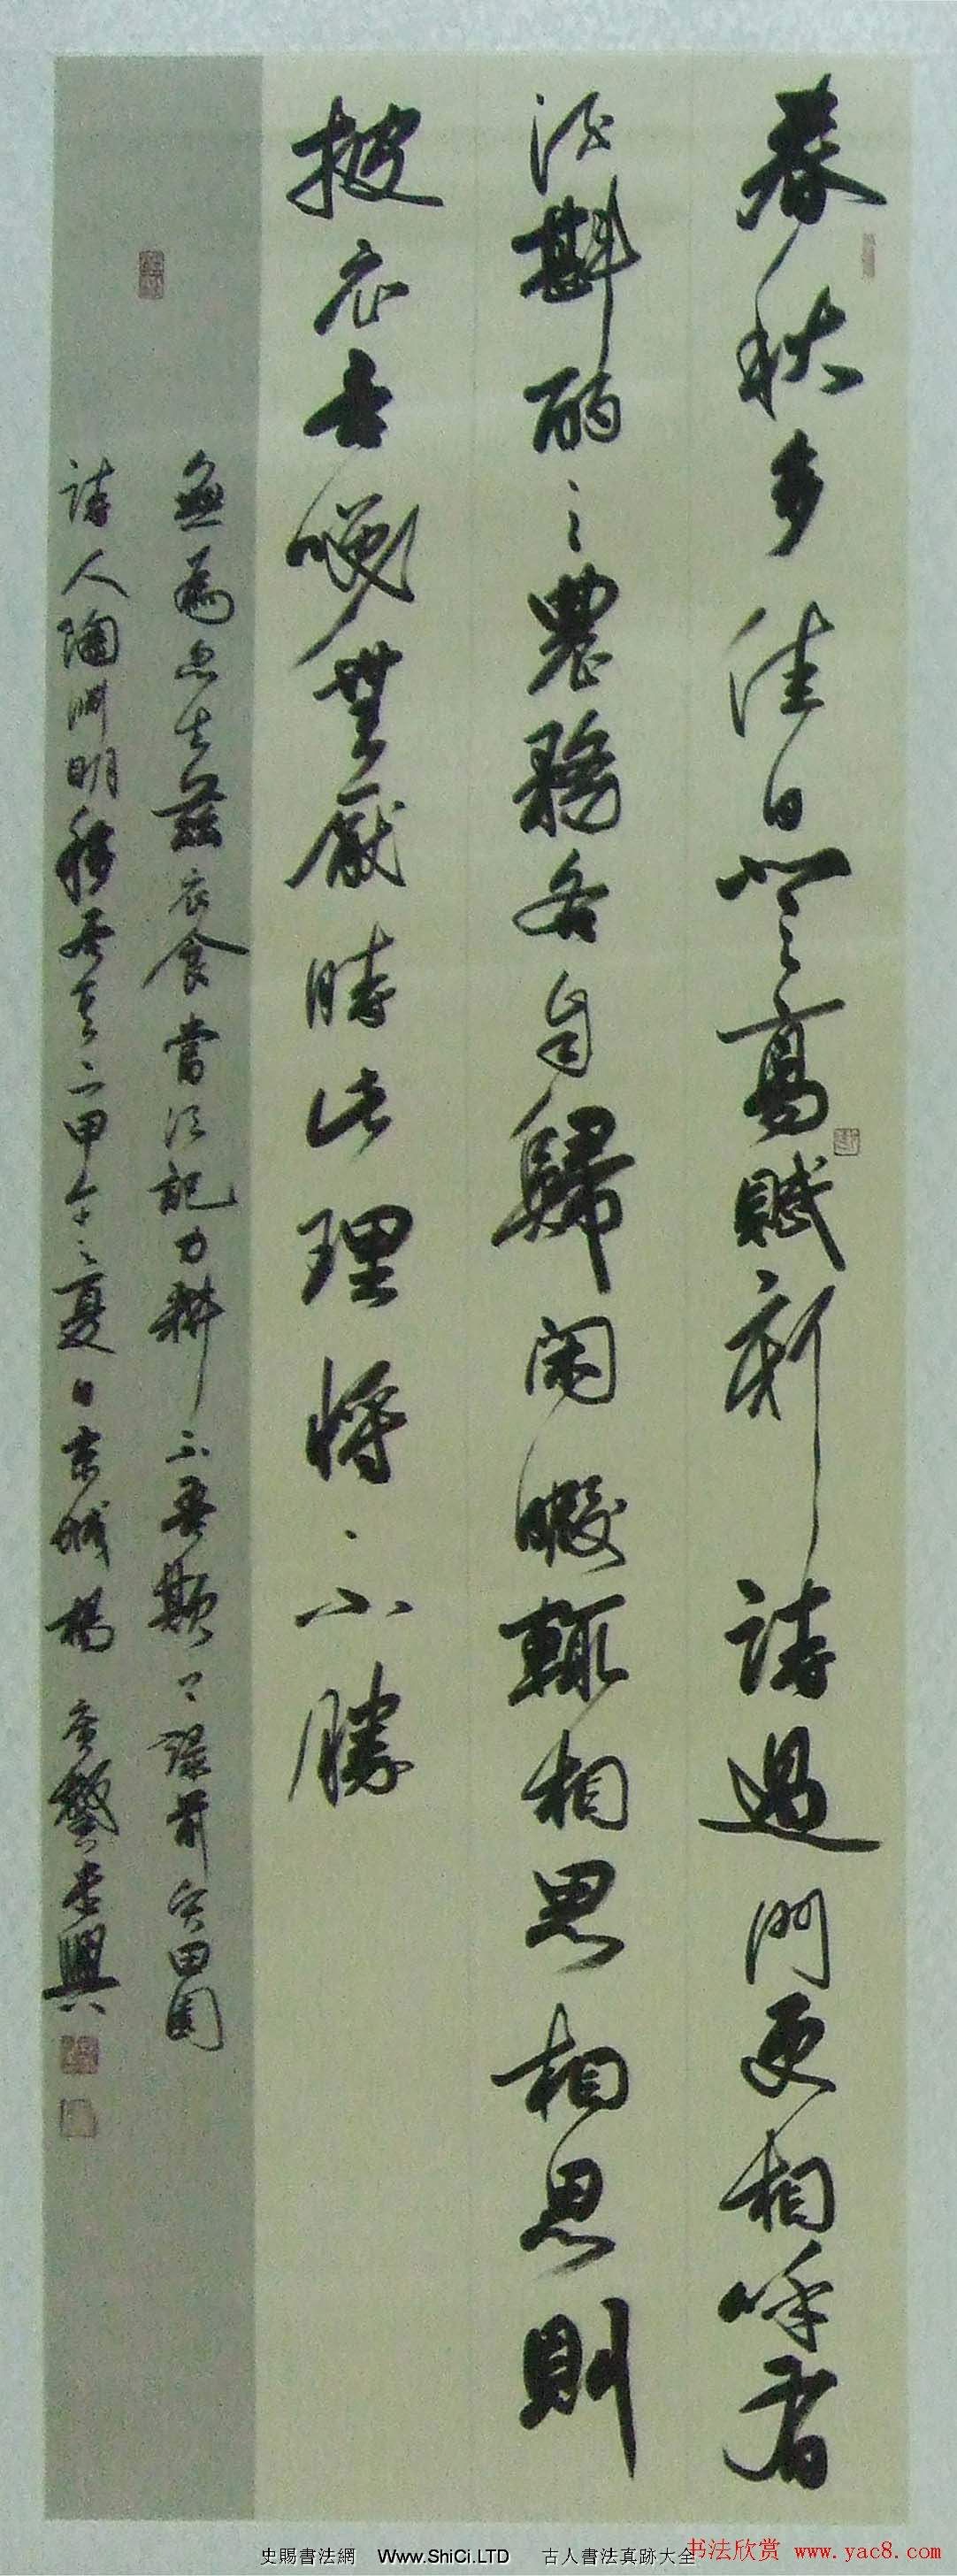 春秋多佳日登高賦新詩過門更相呼有
酒斟酌之農務各自歸閑暇輒相思相思則
披衣言咲無厭時此理將不勝
無為忽去茲衣食當須記力耕不吾欺 錄 田園
詩人陶渊明移居其二甲午之夏日京城楊 興
史賜書法網 Www.ShiCi.LTD 古人書法真跡大全
书法欣赏 www.yac8.com